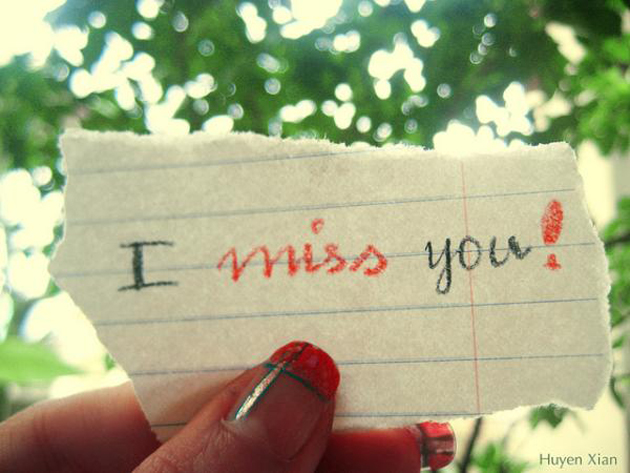 I miss you!
Huyen Xian